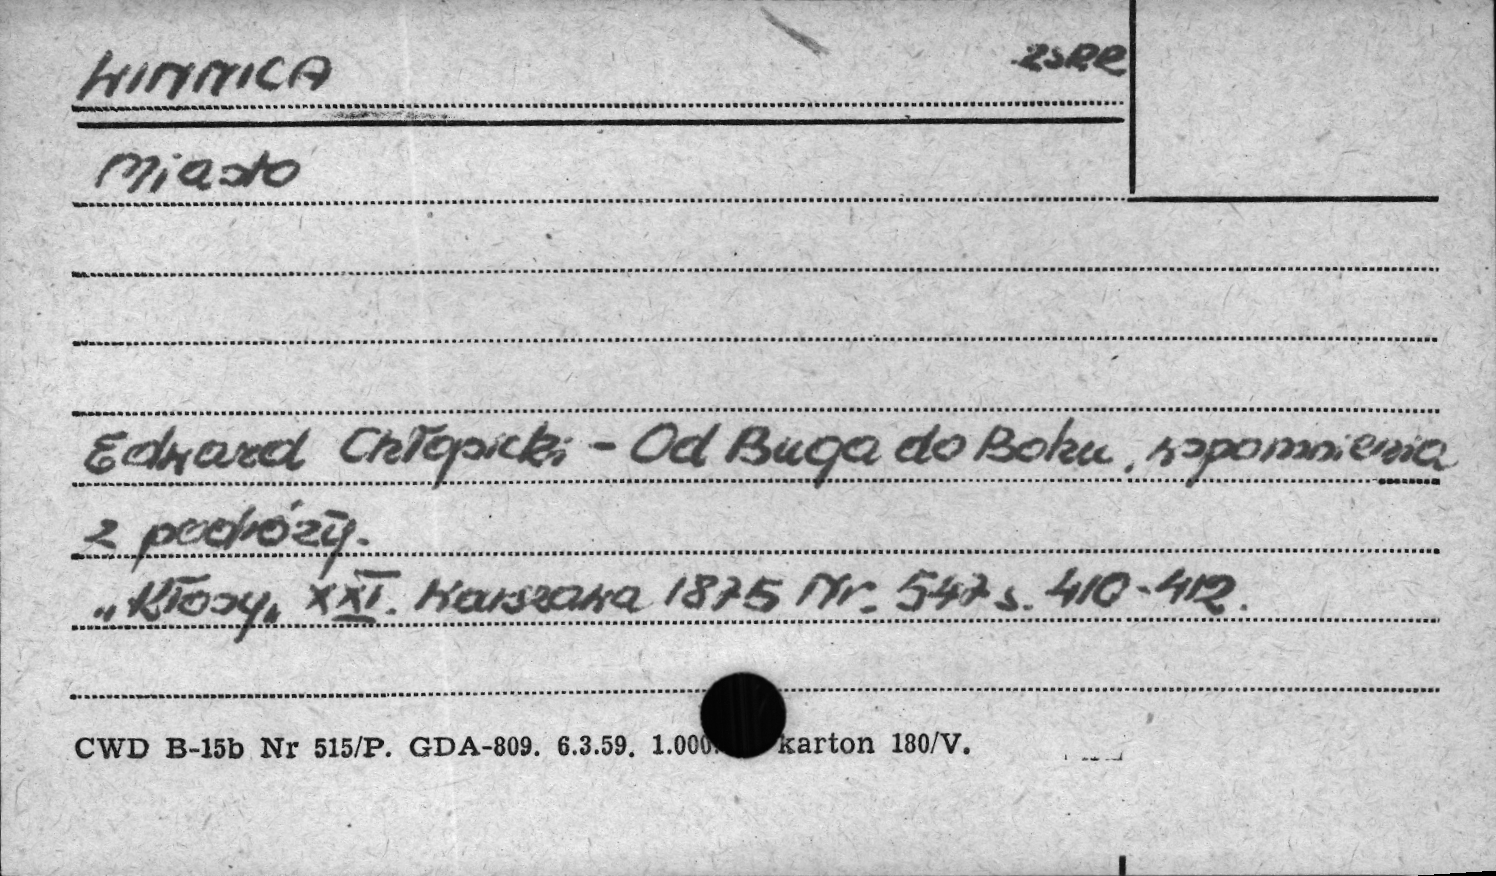 WINNICA
ZSRR
Miasto
Edward Chłopicki - Od Buga do Bohu, wspomnienia
z podróży.
„Kłosy„ XXI. Warszawa 1875 Nr. 547 s. 410-412.
CWD B-15b Nr 515/P. GDA-809. 6.3.59. 1.000. karton 180/V.